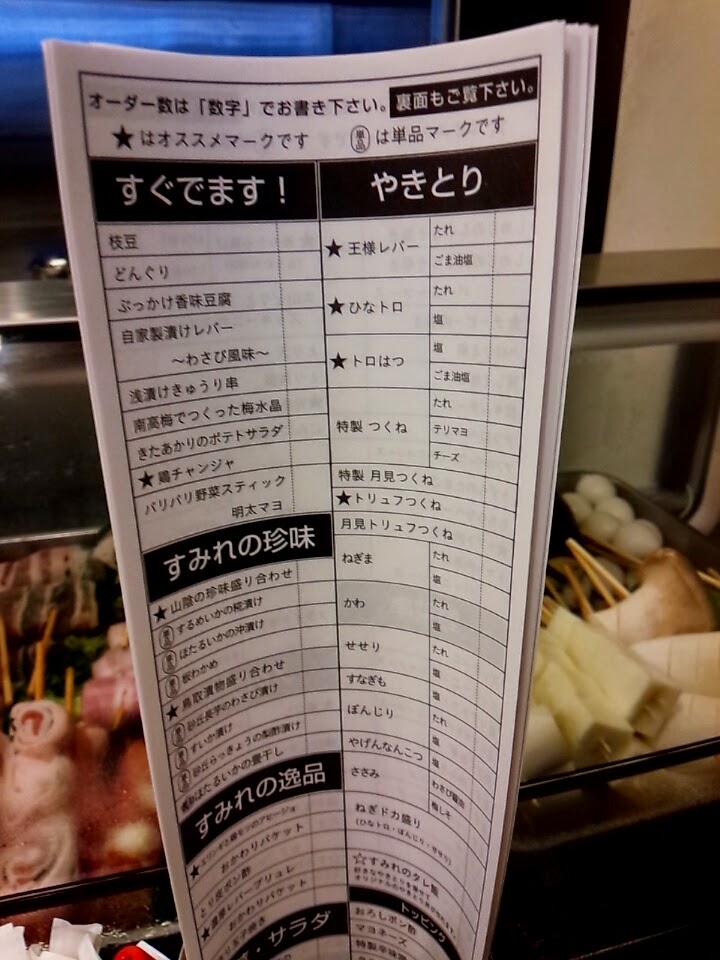 オーダー数は「数字」でお書き下さい。 裏面もご覧下さい。
★はオススメマークです 単品 は単品マークです
すぐでます！
枝豆
どんぐり
ぶっかけ香味豆腐
自家製漬けレバー
〜わさび風味〜
浅漬けきゅうり串
南高梅でつくった梅水晶
きたあかりのポテトサラダ
★鶏チャンジャ
バリバリ野菜スティック
明太マヨ
すみれの珍味
★山陰の珍味盛り合わせ
単品 するめいかの糀漬け
単品 ほたるいかの沖漬け
単品 板わかめ
★鳥取漬物盛り合わせ
単品 砂丘長芋のわさび漬け
単品 すいか漬け
単品 砂丘らっきょうの梨酢漬け
ほたるいかの畳干し
すみれの逸品
おかわりバケット
とり皮ポン酢
★濃厚レバーブリュレ
おかわりバケット
・サラダ
やきとり
★王様レバー たれ
ごま油塩
★ひなトロ たれ
塩
★トロはつ 塩
ごま油塩
特製 つくね たれ
テリマヨ
チーズ
特製 月見つくね
★トリュフつくね
月見トリュフつくね
ねぎま たれ
塩
かわ たれ
塩
せせり たれ
塩
すなぎも 塩
ぼんじり たれ
塩
やげんなんこつ 塩
ささみ わさび醤油
梅しそ
ねぎドカ盛り
(ひなトロ・ぼんじり・せせり)
☆すみれのタレ飯
トッピング
おろしポン酢
マヨネーズ
特製辛味噌